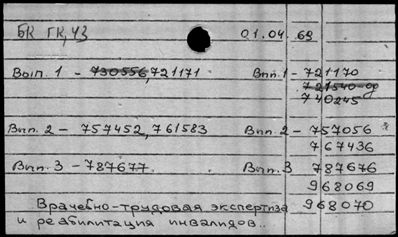 БК ГК, 43 01.04.69
Вып. 1 - 730556, 721171 Вып. 1 - 721170
721540-од
740245
Вып. 2 - 757452, 761583 Вып. 2 - 757056
767436
Вып. 3 - 787677 Вып. 3 787676
968069
Врачебно-трудовая экспертиза 968070
и реабилитация инвалидов..